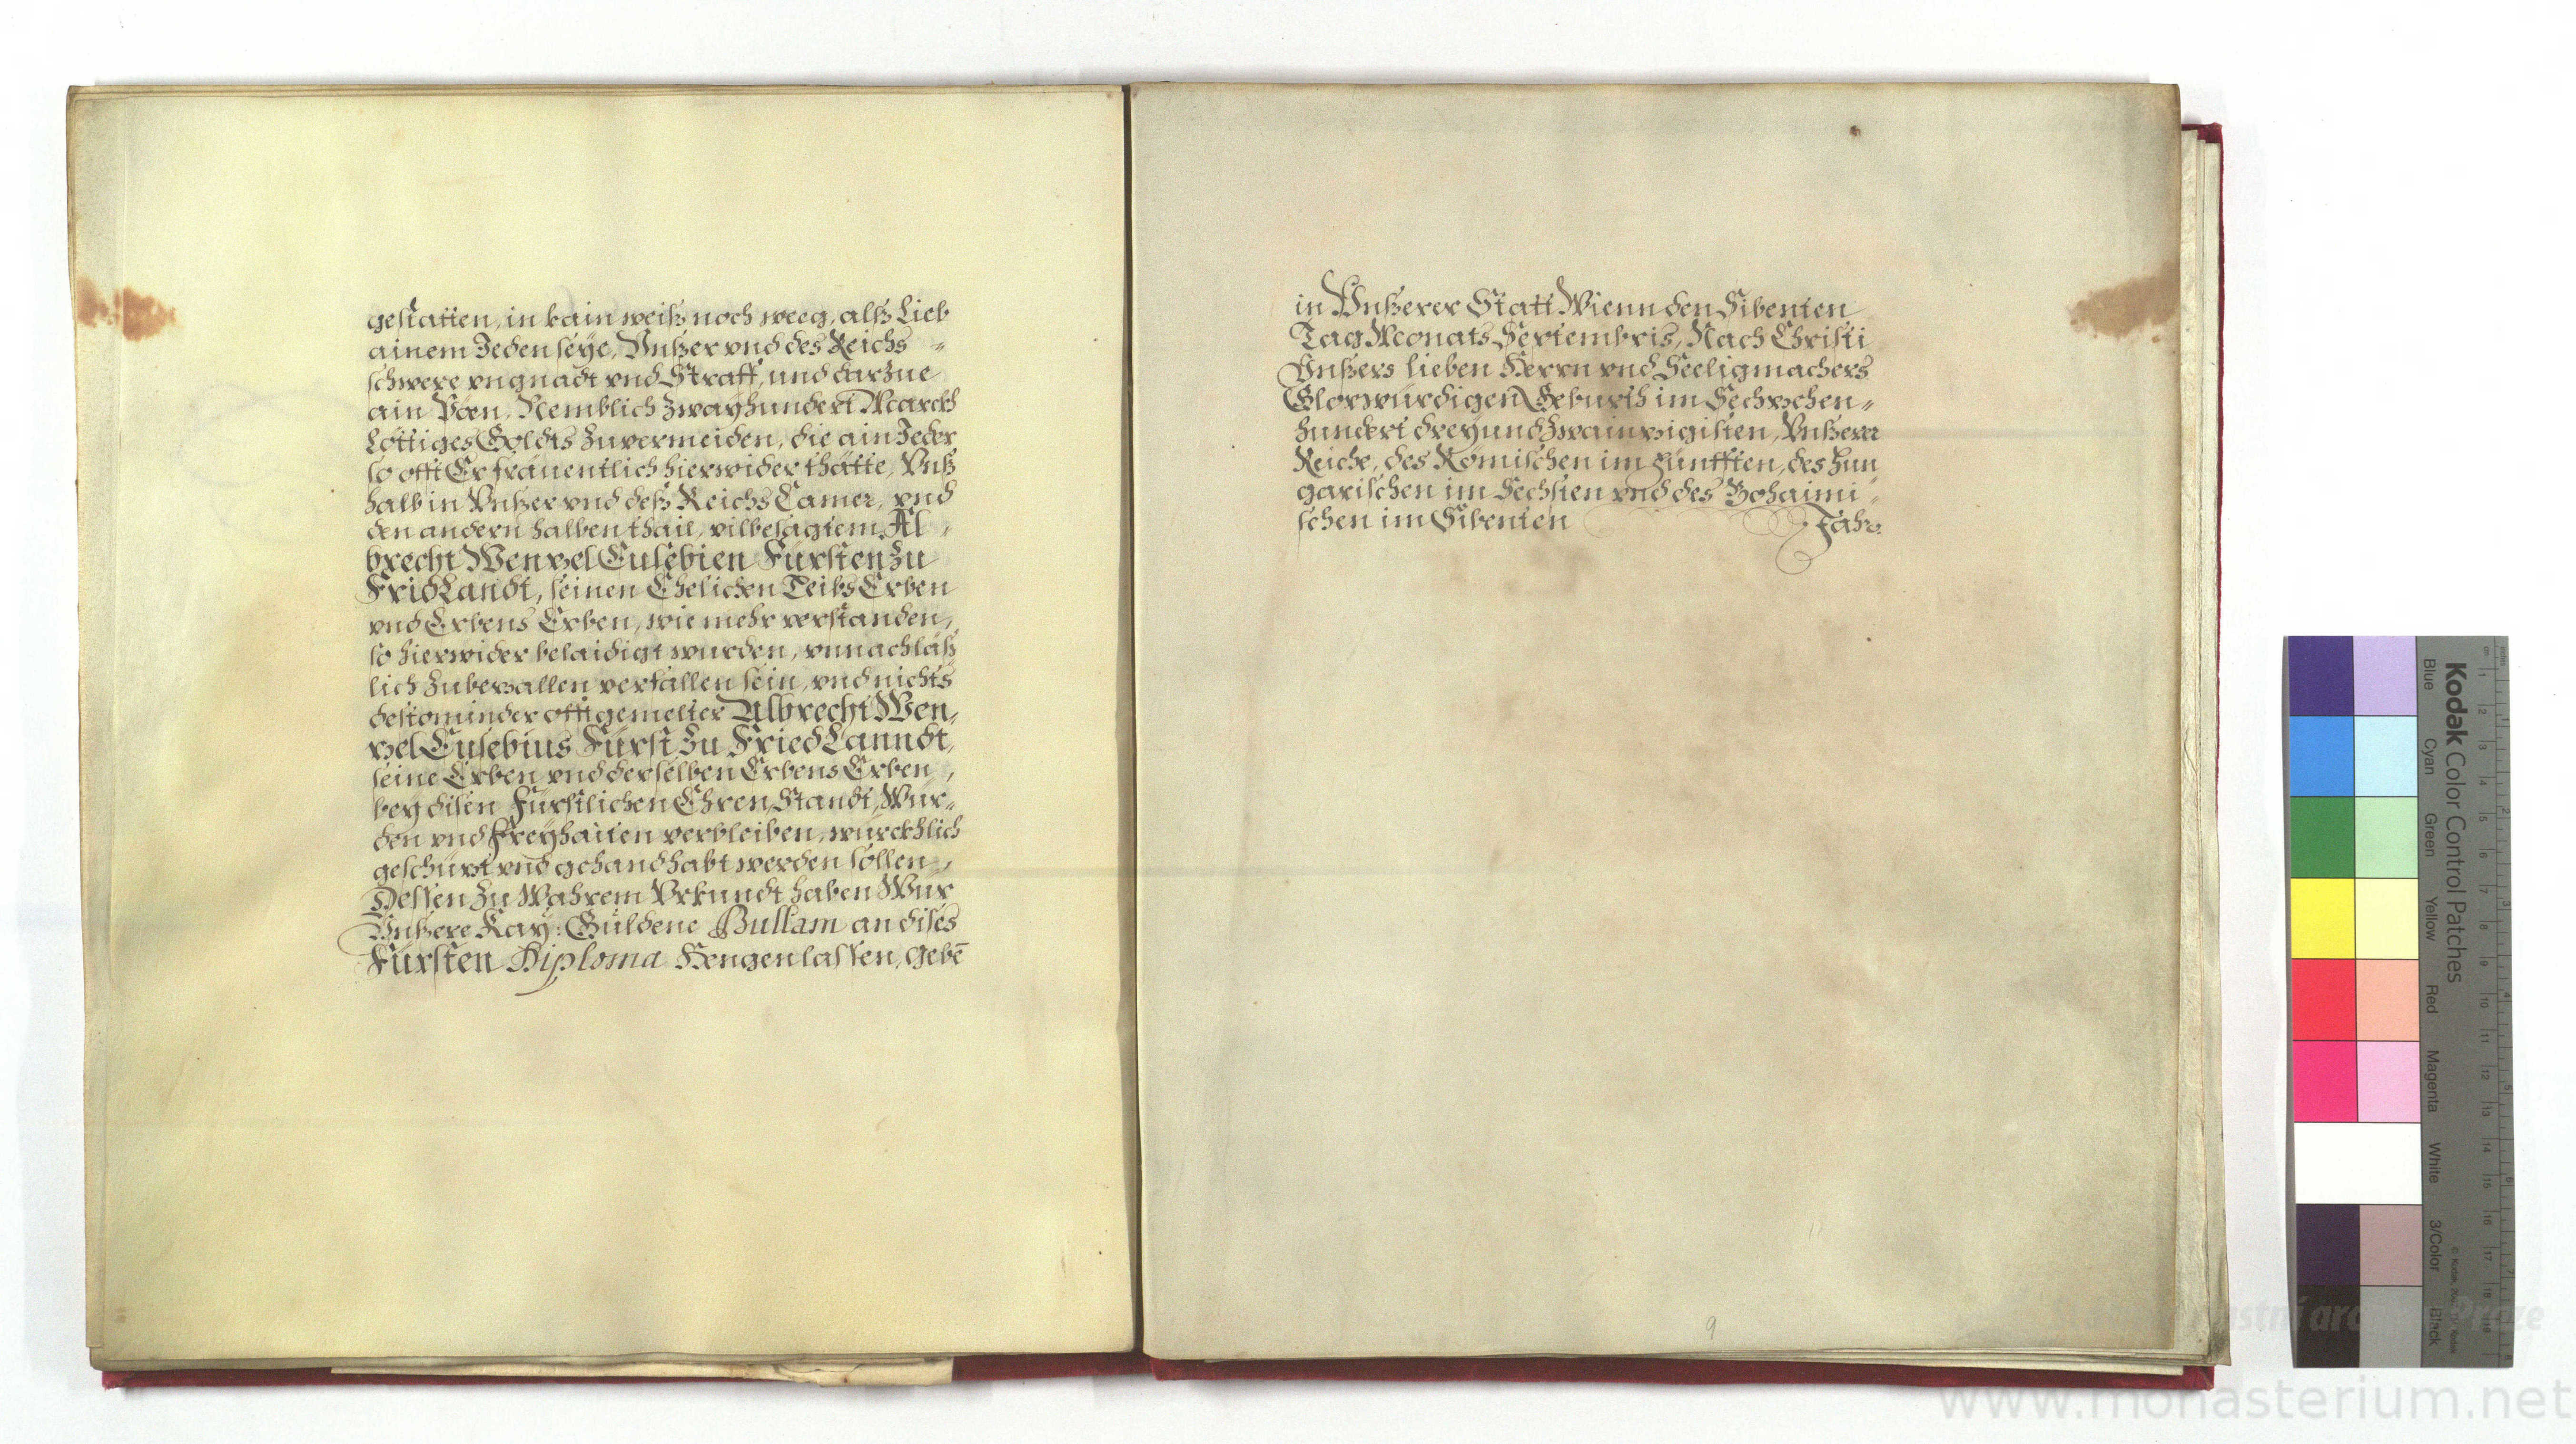 gestatten, in kain weiß noch weeg, alß Lieb
ainem Jeden seye, Vnßer vnd des Reichs
schwere vngnadt vnd Straff, und darzue
ain Pöen, Nemblich zwayhundert Marckh
Löttiges Goldts zuvermeiden, die ain Jeder
so offt Er fräuentlich hierwider thätte, Vnß
halb in Vnßer vnd deß Reichs Camer, vnd
den andern halben thail, vilbesagtem Al-
brecht Wenzel Eusebien Fürsten zu
FridLandt, seinen Ehelichen Leibs Erben
vnd Erbens Erben, wie mehr verstanden,
so hierwider belaidigt wurden, vnnachläß
lich zubezallen verfallen sein, vnd nichts
destominder offtgemelter Albrecht Wen-
zel Eusebius Fürst zu FriedLanndt,
seine Erben vnd derselben Erbens Erben,
bey disen Fürstlichen Ehren, Standt, Wür-
den vnd Freyhaiten verbleiben, würckhlich
geschüzt vnd gehandhabt werden sollen,
Dessen zu Wahrem Vrkundt haben Wür
Vnßere Kay: Güldene Bullam an dises
Fürsten Diploma Hengen lassen, gebē
in Vnßerer Statt Wienn den Sibenten
Tag Monats Septembris, Nach Christi
Vnßers lieben Herrn vnd Seeligmachers
Glorwürdigen Geburth im Sechzehen-
hundert dreyundzwainzigisten, Vnßerer
Reiche, des Römischen im Fünfften, des Hun
garischen im Sechsten vnd des Bohaimi-
schen im Sibenten Jahr.
9
Kodak Color Control Patches
Blue Cyan Green Yellow Red Magenta White 3/Color Black
www.monasterium.net